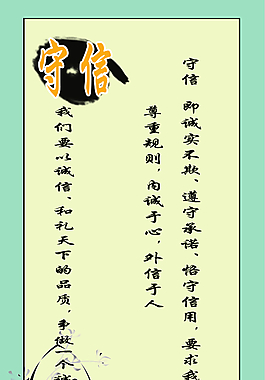 守信
守信 即诚实不欺、遵守承诺、恪守信用，要求我
尊重规则，内诚于心，外信于人
我们要以诚信、和礼天下的品质，争做一个诚